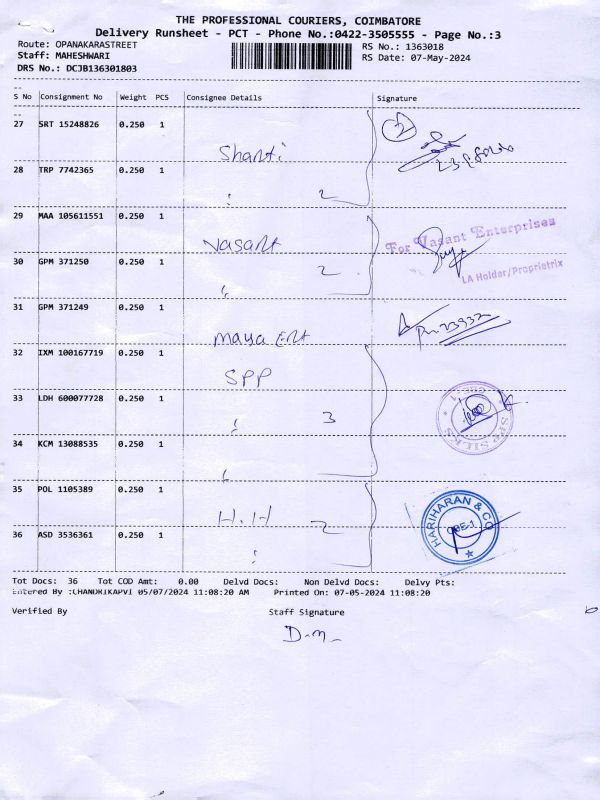 THE PROFESSIONAL COURIERS, COIMBATORE
Delivery Runsheet - PCT - Phone No.:0422-3505555 - Page No.:3
Route: OPANAKARASTREET
RS No.: 1363018
Staff: MAHESHWARI
RS Date: 07-May-2024
DRS No.: DCJB136301803
S No Consignment No Weight PCS Consignee Details Signature
27 SRT 15248826 0.250 1
2
Shanti
28 TRP 7742365 0.250 1
2
29 MAA 105611551 0.250 1
Vasant
For Vasant Enterprises
30 GPM 371250 0.250 1
2
LA Holder/Proprietrix
31 GPM 371249 0.250 1
Maya Ent
32 IXM 100167719 0.250 1
SPP
33 LDH 600077728 0.250 1
3
SPP SILKS
34 KCM 13088535 0.250 1
35 POL 1105389 0.250 1
H.H
2
HARIHARAN & CO
CBE-1
36 ASD 3536361 0.250 1
Tot Docs: 36 Tot COD Amt: 0.00 Delvd Docs: Non Delvd Docs: Delvy Pts:
Entered By :CHANDRIKAPVI 05/07/2024 11:08:20 AM Printed On: 07-05-2024 11:08:20
Verified By Staff Signature
D.M.